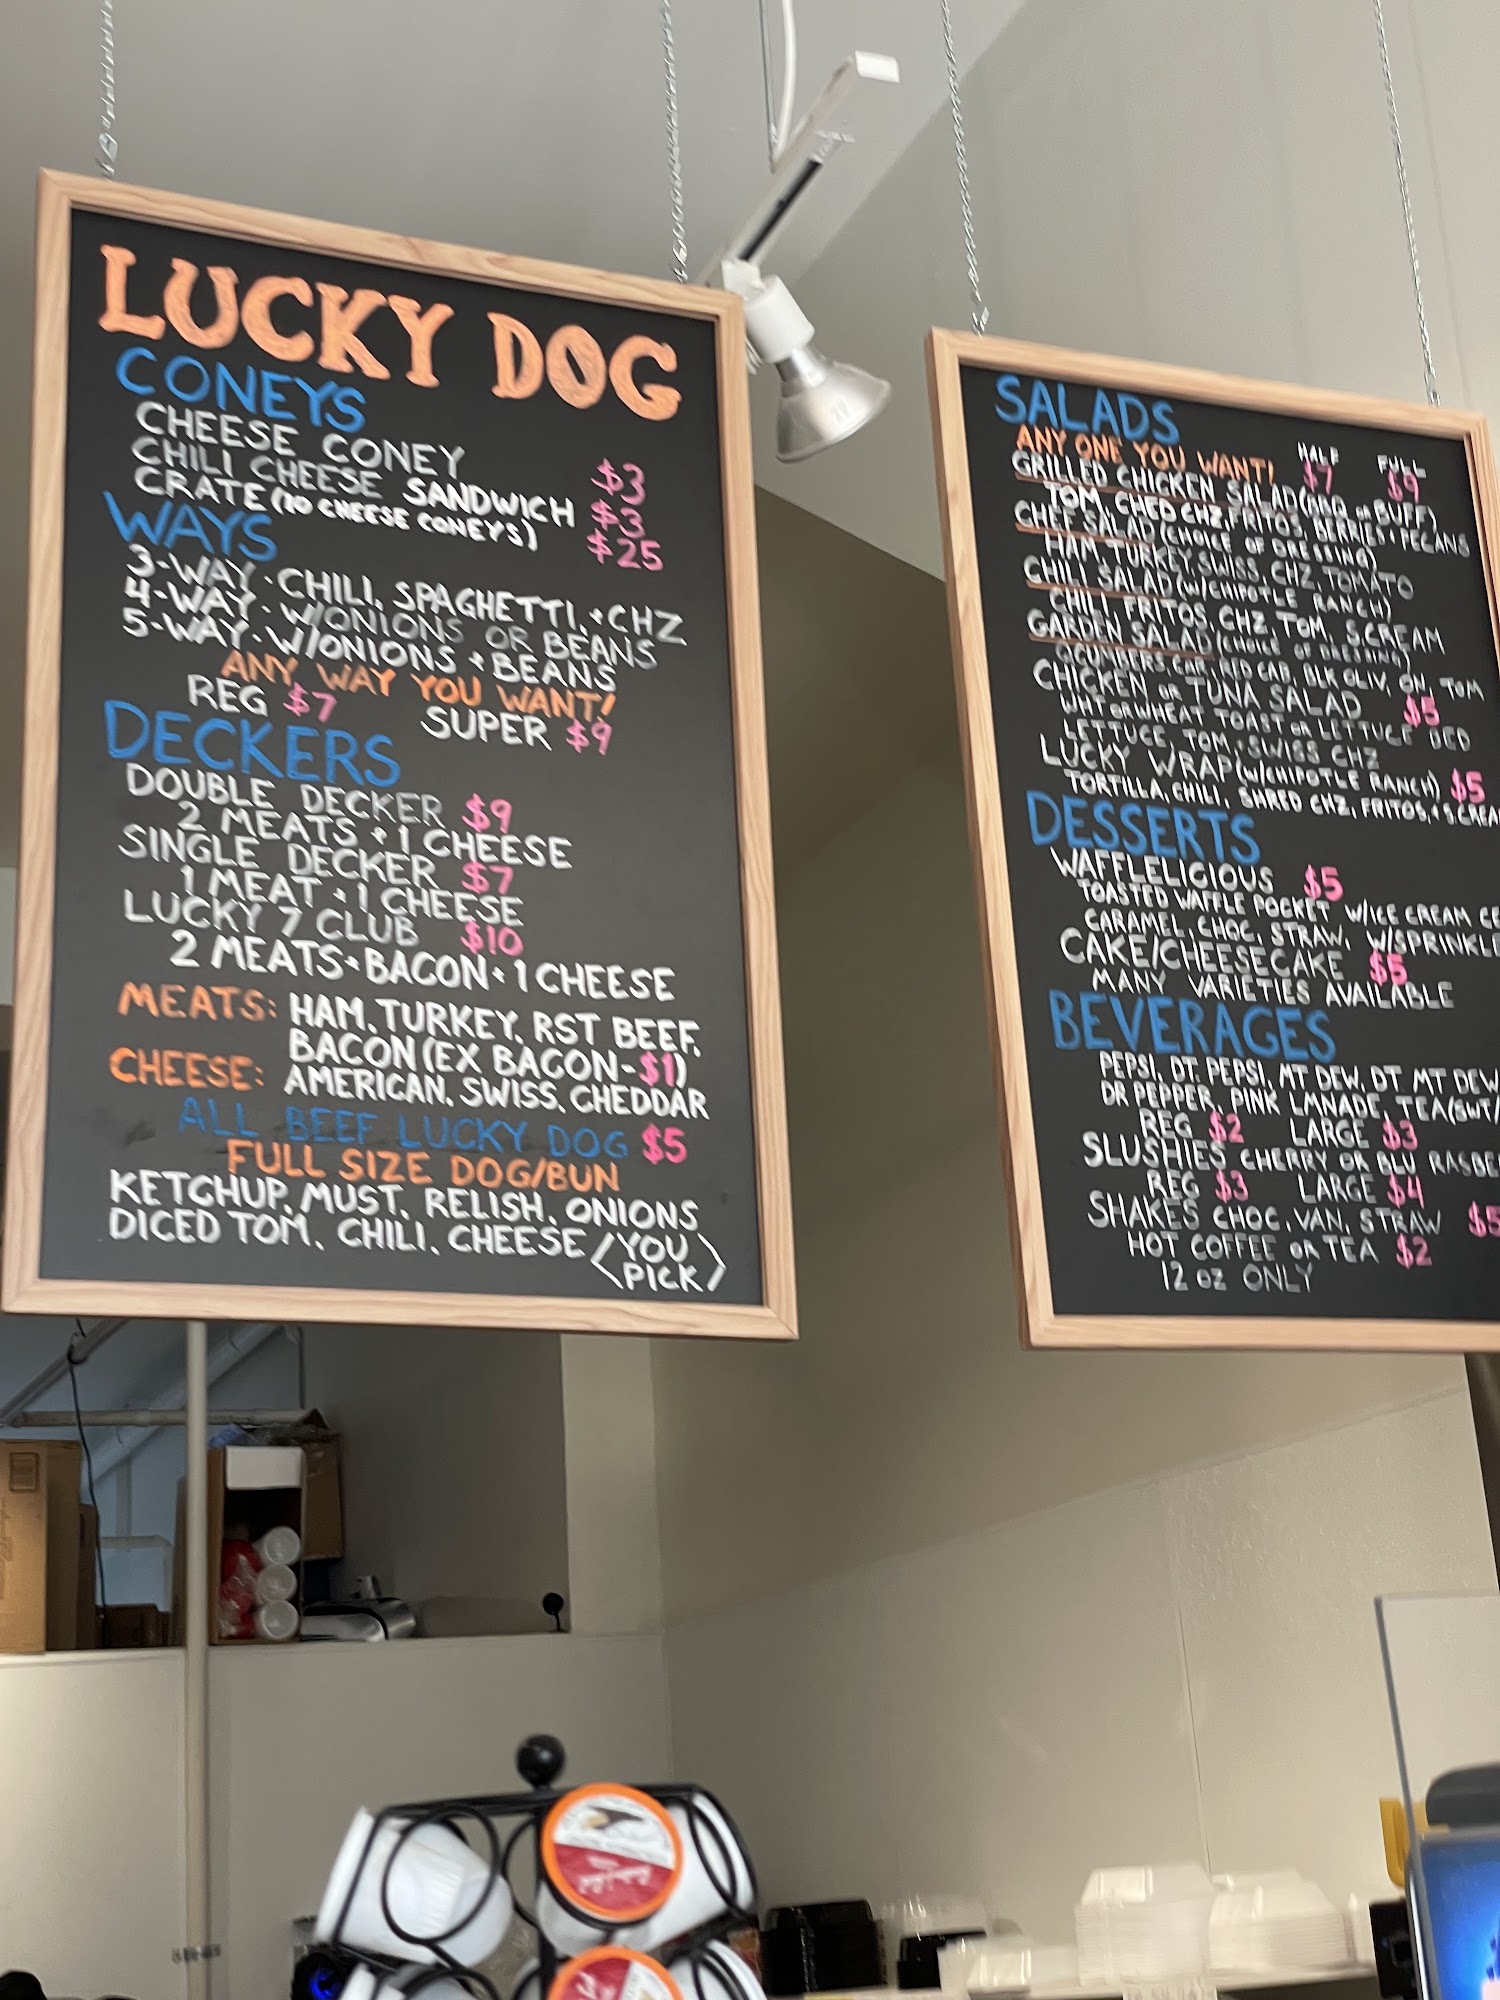 LUCKY DOG
CONEYS
CHEESE CONEY $3
CHILI CHEESE SANDWICH $3
CRATE (10 CHEESE CONEYS) $25
WAYS
3-WAY - CHILI, SPAGHETTI, + CHZ
4-WAY - W/ONIONS OR BEANS
5-WAY - W/ONIONS + BEANS
ANY WAY YOU WANT!
REG $7 SUPER $9
DECKERS
DOUBLE DECKER $9
2 MEATS + 1 CHEESE
SINGLE DECKER $7
1 MEAT + 1 CHEESE
LUCKY 7 CLUB $10
2 MEATS + BACON + 1 CHEESE
MEATS: HAM, TURKEY, RST BEEF,
BACON (EX BACON - $1)
CHEESE: AMERICAN, SWISS, CHEDDAR
ALL BEEF LUCKY DOG $5
FULL SIZE DOG/BUN
KETCHUP, MUST, RELISH, ONIONS
DICED TOM, CHILI, CHEESE (YOU
PICK)
SALADS
ANY ONE YOU WANT! HALF $7 FULL $9
GRILLED CHICKEN SALAD (BBQ OR BUFF)
TOM, CHED CHZ, FRITOS, BERRIES + PECANS
CHEF SALAD (CHOICE OF DRESSING)
HAM, TURKEY, SWISS, CHZ, TOMATO
CHILI SALAD (W/CHIPOTLE RANCH)
CHILI, FRITOS, CHZ, TOM, S.CREAM
GARDEN SALAD (CHOICE OF DRESSING)
CUCUMBERS, CAR, RED CAB, BLK OLIV, ON, TOM
CHICKEN OR TUNA SALAD $5
WHT OR WHEAT TOAST OR LETTUCE BED
LETTUCE, TOM, SWISS CHZ
LUCKY WRAP (W/CHIPOTLE RANCH) $5
TORTILLA, CHILI, SHRED CHZ, FRITOS, + S.CREA
DESSERTS
WAFFLELICIOUS $5
TOASTED WAFFLE POCKET W/ICE CREAM CE
CARAMEL, CHOC, STRAW, W/SPRINKLE
CAKE/CHEESECAKE $5
MANY VARIETIES AVAILABLE
BEVERAGES
PEPSI, DT PEPSI, MT DEW, DT MT DEW
DR PEPPER, PINK LMNADE, TEA (SWT/
REG $2 LARGE $3
SLUSHIES CHERRY OR BLU RASBE
REG $3 LARGE $4
SHAKES CHOC, VAN, STRAW $5
HOT COFFEE OR TEA $2
12 OZ ONLY